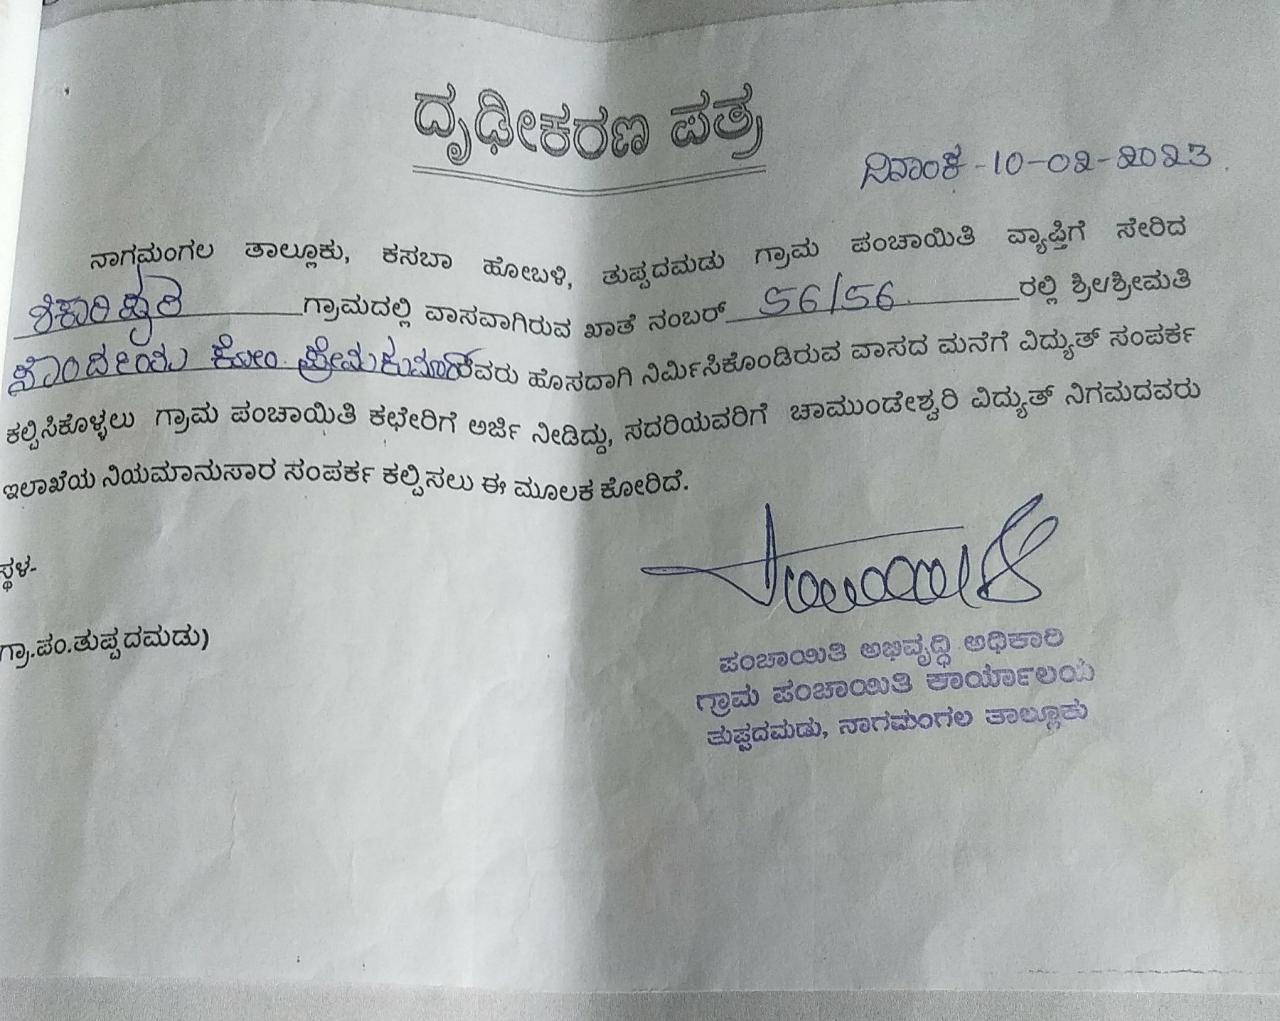 ದೃಢೀಕರಣ ಪತ್ರ
ದಿನಾಂಕ-10-02-2023
ನಾಗಮಂಗಲ ತಾಲ್ಲೂಕು, ಕಸಬಾ ಹೋಬಳಿ, ತುಪ್ಪದಮಡು ಗ್ರಾಮ ಪಂಚಾಯಿತಿ ವ್ಯಾಪ್ತಿಗೆ ಸೇರಿದ
ಗ್ರಾಮದಲ್ಲಿ ವಾಸವಾಗಿರುವ ಖಾತೆ ನಂಬರ್ 56/56 ರಲ್ಲಿ ಶ್ರೀ/ಶ್ರೀಮತಿ
ಕೋಂ ಪ್ರೇಮಕುಮಾರ್ ರವರು ಹೊಸದಾಗಿ ನಿರ್ಮಿಸಿಕೊಂಡಿರುವ ವಾಸದ ಮನೆಗೆ ವಿದ್ಯುತ್ ಸಂಪರ್ಕ
ಕಲ್ಪಿಸಿಕೊಳ್ಳಲು ಗ್ರಾಮ ಪಂಚಾಯಿತಿ ಕಛೇರಿಗೆ ಅರ್ಜಿ ನೀಡಿದ್ದು, ಸದರಿಯವರಿಗೆ ಚಾಮುಂಡೇಶ್ವರಿ ವಿದ್ಯುತ್ ನಿಗಮದವರು
ಇಲಾಖೆಯ ನಿಯಮಾನುಸಾರ ಸಂಪರ್ಕ ಕಲ್ಪಿಸಲು ಈ ಮೂಲಕ ಕೋರಿದೆ.
ಸ್ಥಳ-
ಗ್ರಾ.ಪಂ.ತುಪ್ಪದಮಡು)
ಪಂಚಾಯಿತಿ ಅಭಿವೃದ್ಧಿ ಅಧಿಕಾರಿ
ಗ್ರಾಮ ಪಂಚಾಯಿತಿ ಕಾರ್ಯಾಲಯ
ತುಪ್ಪದಮಡು, ನಾಗಮಂಗಲ ತಾಲ್ಲೂಕು